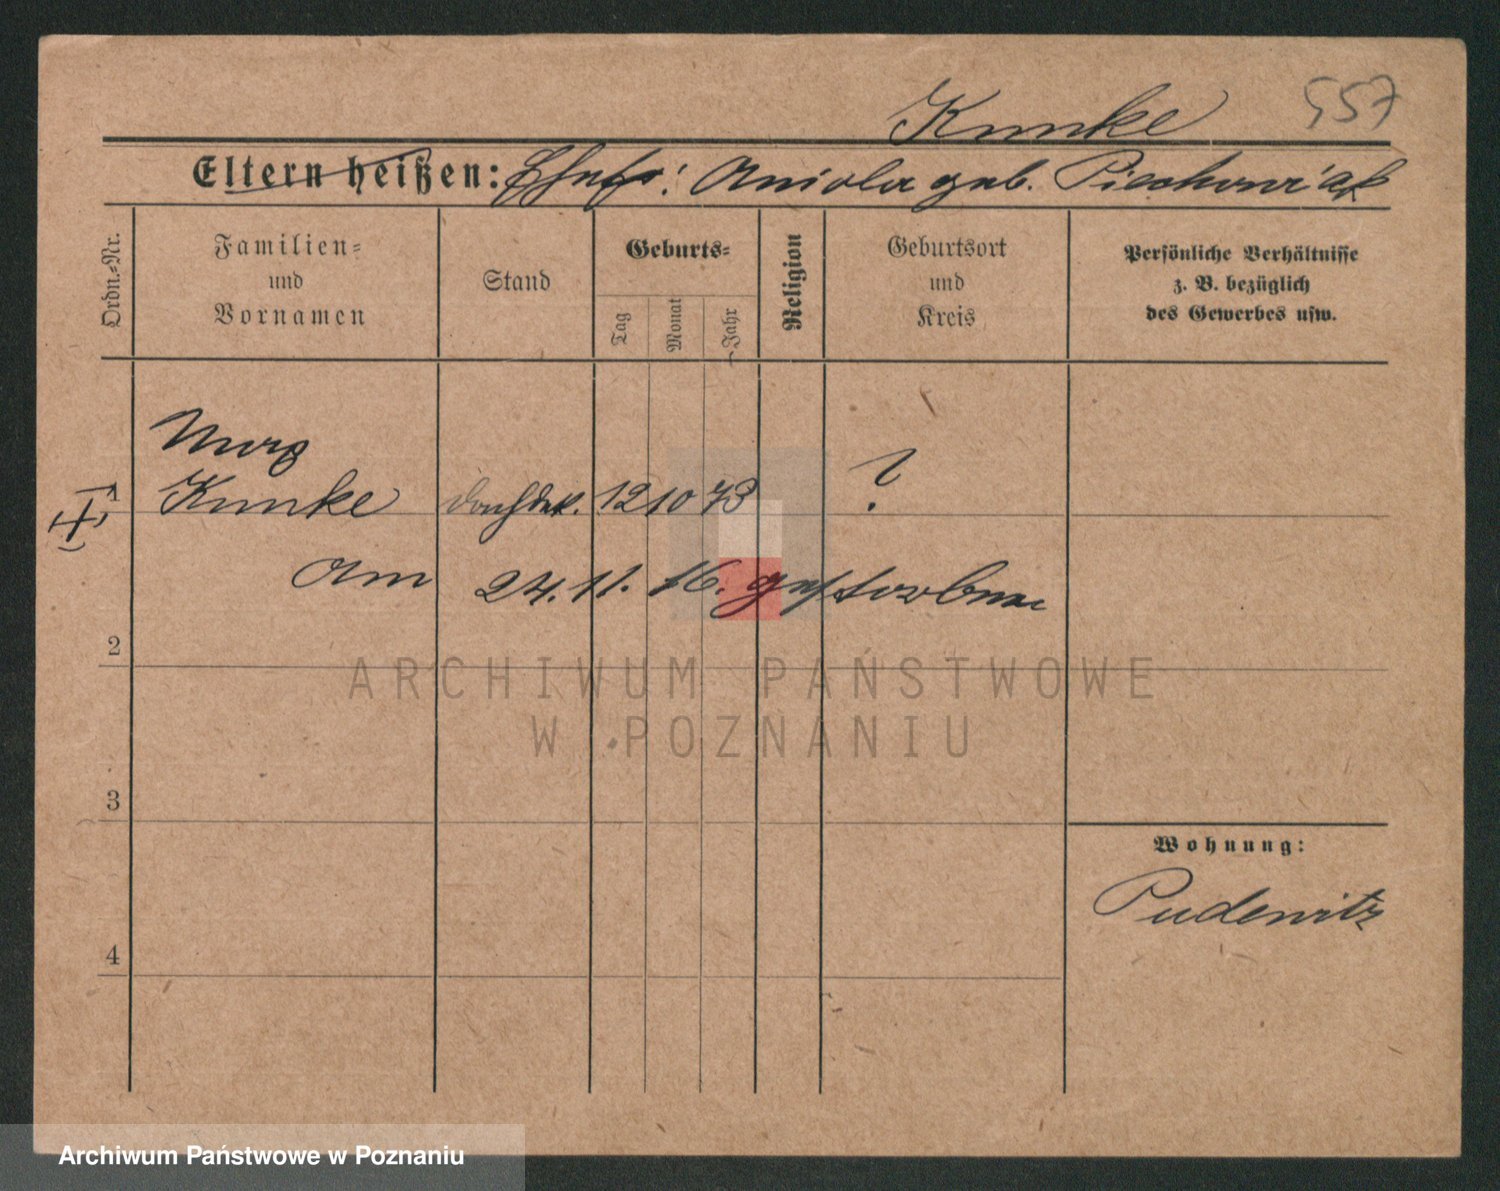 Kunke 557
Eltern heißen: Ehefr: Aniola geb. Piechowiak
Ordn.-Nr.
Familien-
und
Vornamen
Stand
Geburts-
Tag
Monat
Jahr
Religion
Geburtsort
und
Kreis
Persönliche Verhältnisse
z. B. bezüglich
des Gewerbes usw.
1 Kunke 12 10 73 ?
am 24. 11. 16. gestorben
2
ARCHIWUM PAŃSTWOWE
W POZNANIU
3
Wohnung:
Pudewitz
4
Archiwum Państwowe w Poznaniu